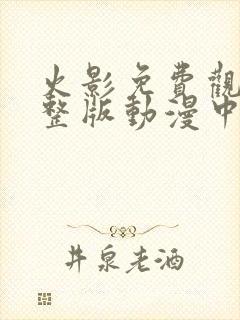 火影免費觀
整版動漫中
井泉老酒